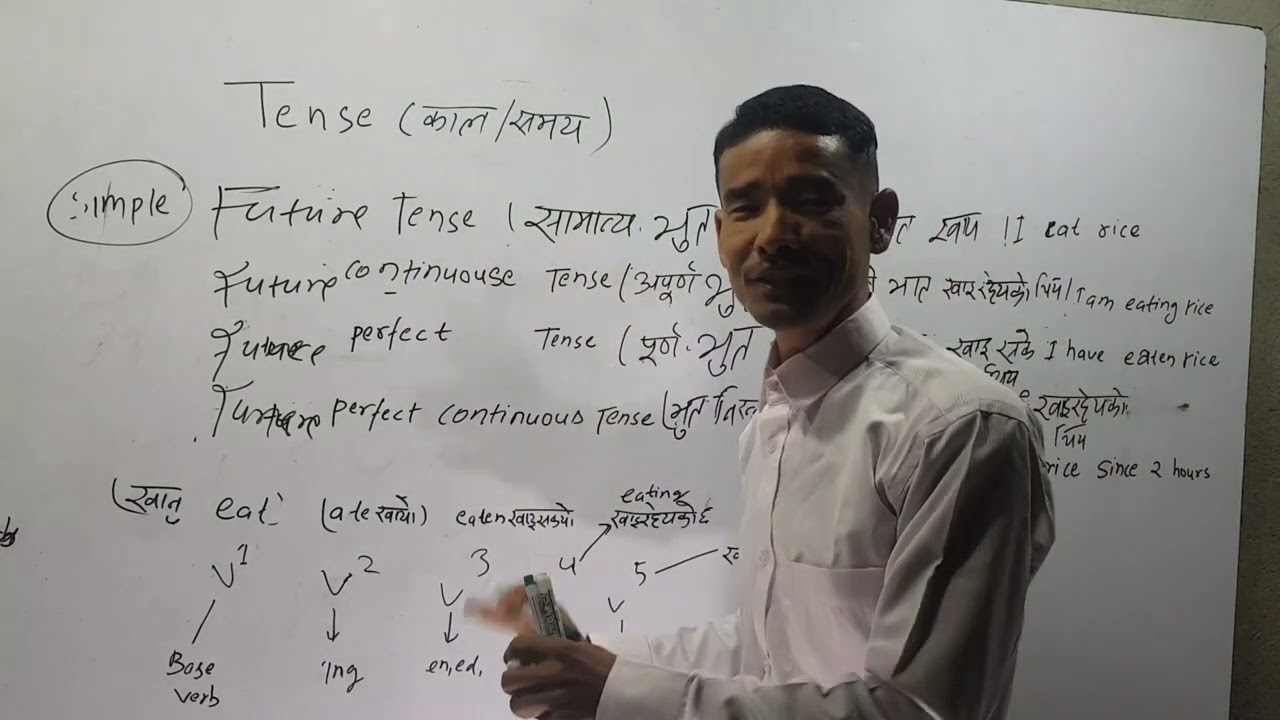 Tense (काल/समय)
Simple Future Tense (सामात्य. भुत खाए । I eat rice
Future continuouse Tense (अपूर्ण भु भात खाइरहेयको थिय। I am eating rice
perfect Tense (पूर्ण. भुत खाइ सके I have eaten rice
थिय
perfect continuous Tense (भुत खाइरहेयको
थिय
rice since 2 hours
(खानु eat (ate खायो) eaten खाइसक्यो eating
खाइरहेयको छ
V1 V2 3 4 5
V V
Base verb ing en,ed,